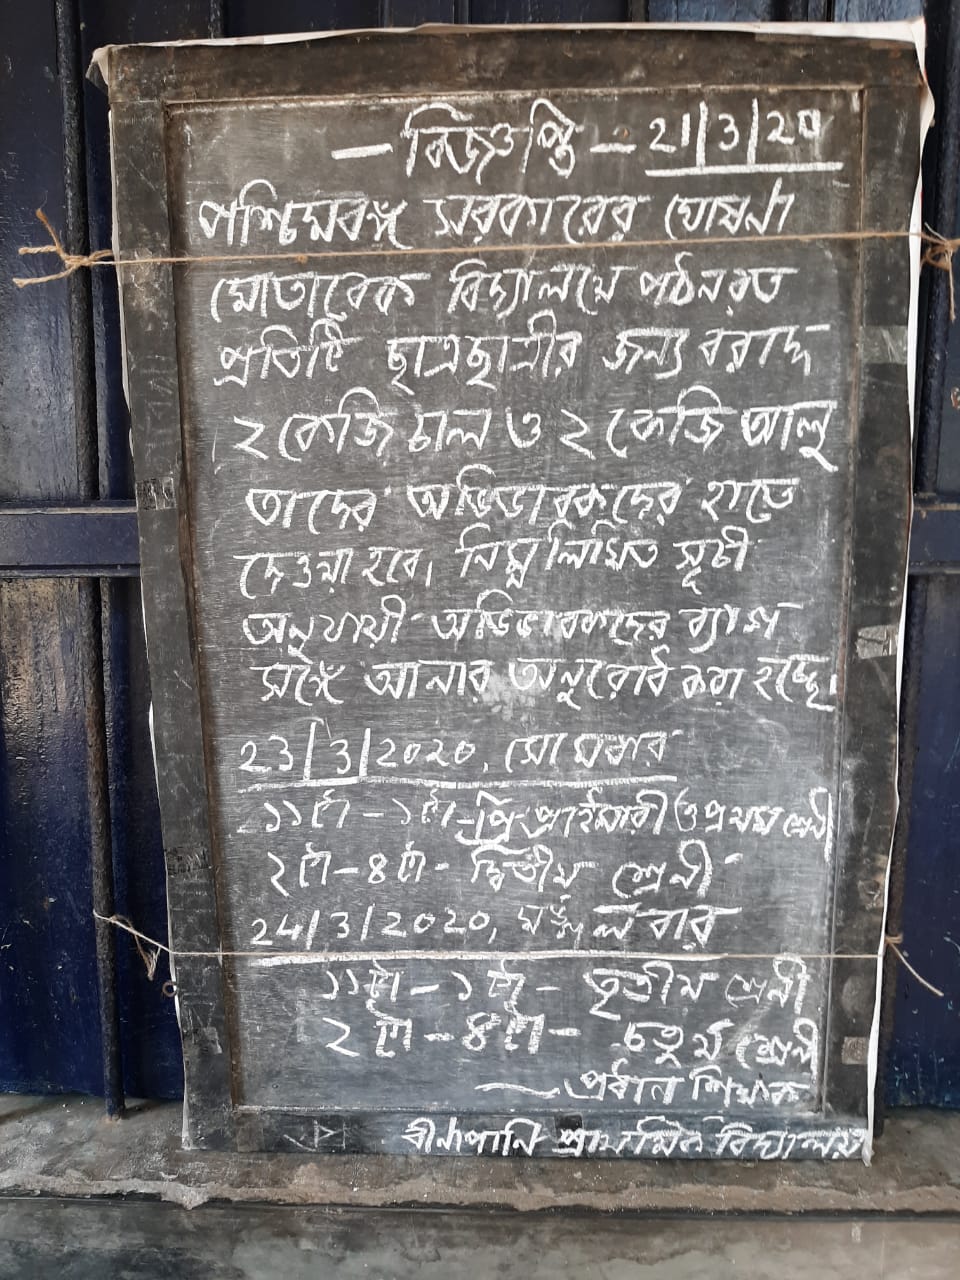 — বিজ্ঞপ্তি — 21/3/20
পশ্চিমবঙ্গ সরকারের ঘোষনা
মোতাবেক বিদ্যালয়ে পঠনরত
প্রতিটি ছাত্রছাত্রীর জন্য বরাদ্দ
২ কেজি চাল ও ২ কেজি আলু
তাদের অভিভাবকদের হাতে
দেওয়া হবে। নিম্নলিখিত সূচী
অনুযায়ী অভিভাবকদের ব্যাগ
সঙ্গে আনার অনুরোধ করা হচ্ছে।
23/3/2020, সোমবার
১১টা - ১টা - প্রি-প্রাইমারী ও প্রথম শ্রেনী
২টা - ৪টা - দ্বিতীয় শ্রেনী
24/3/2020, মঙ্গলবার
১১টা - ১টা - তৃতীয় শ্রেনী
২টা - ৪টা - চতুর্থ শ্রেনী
— প্রধান শিক্ষক
বীনাপানি প্রাথমিক বিদ্যালয়